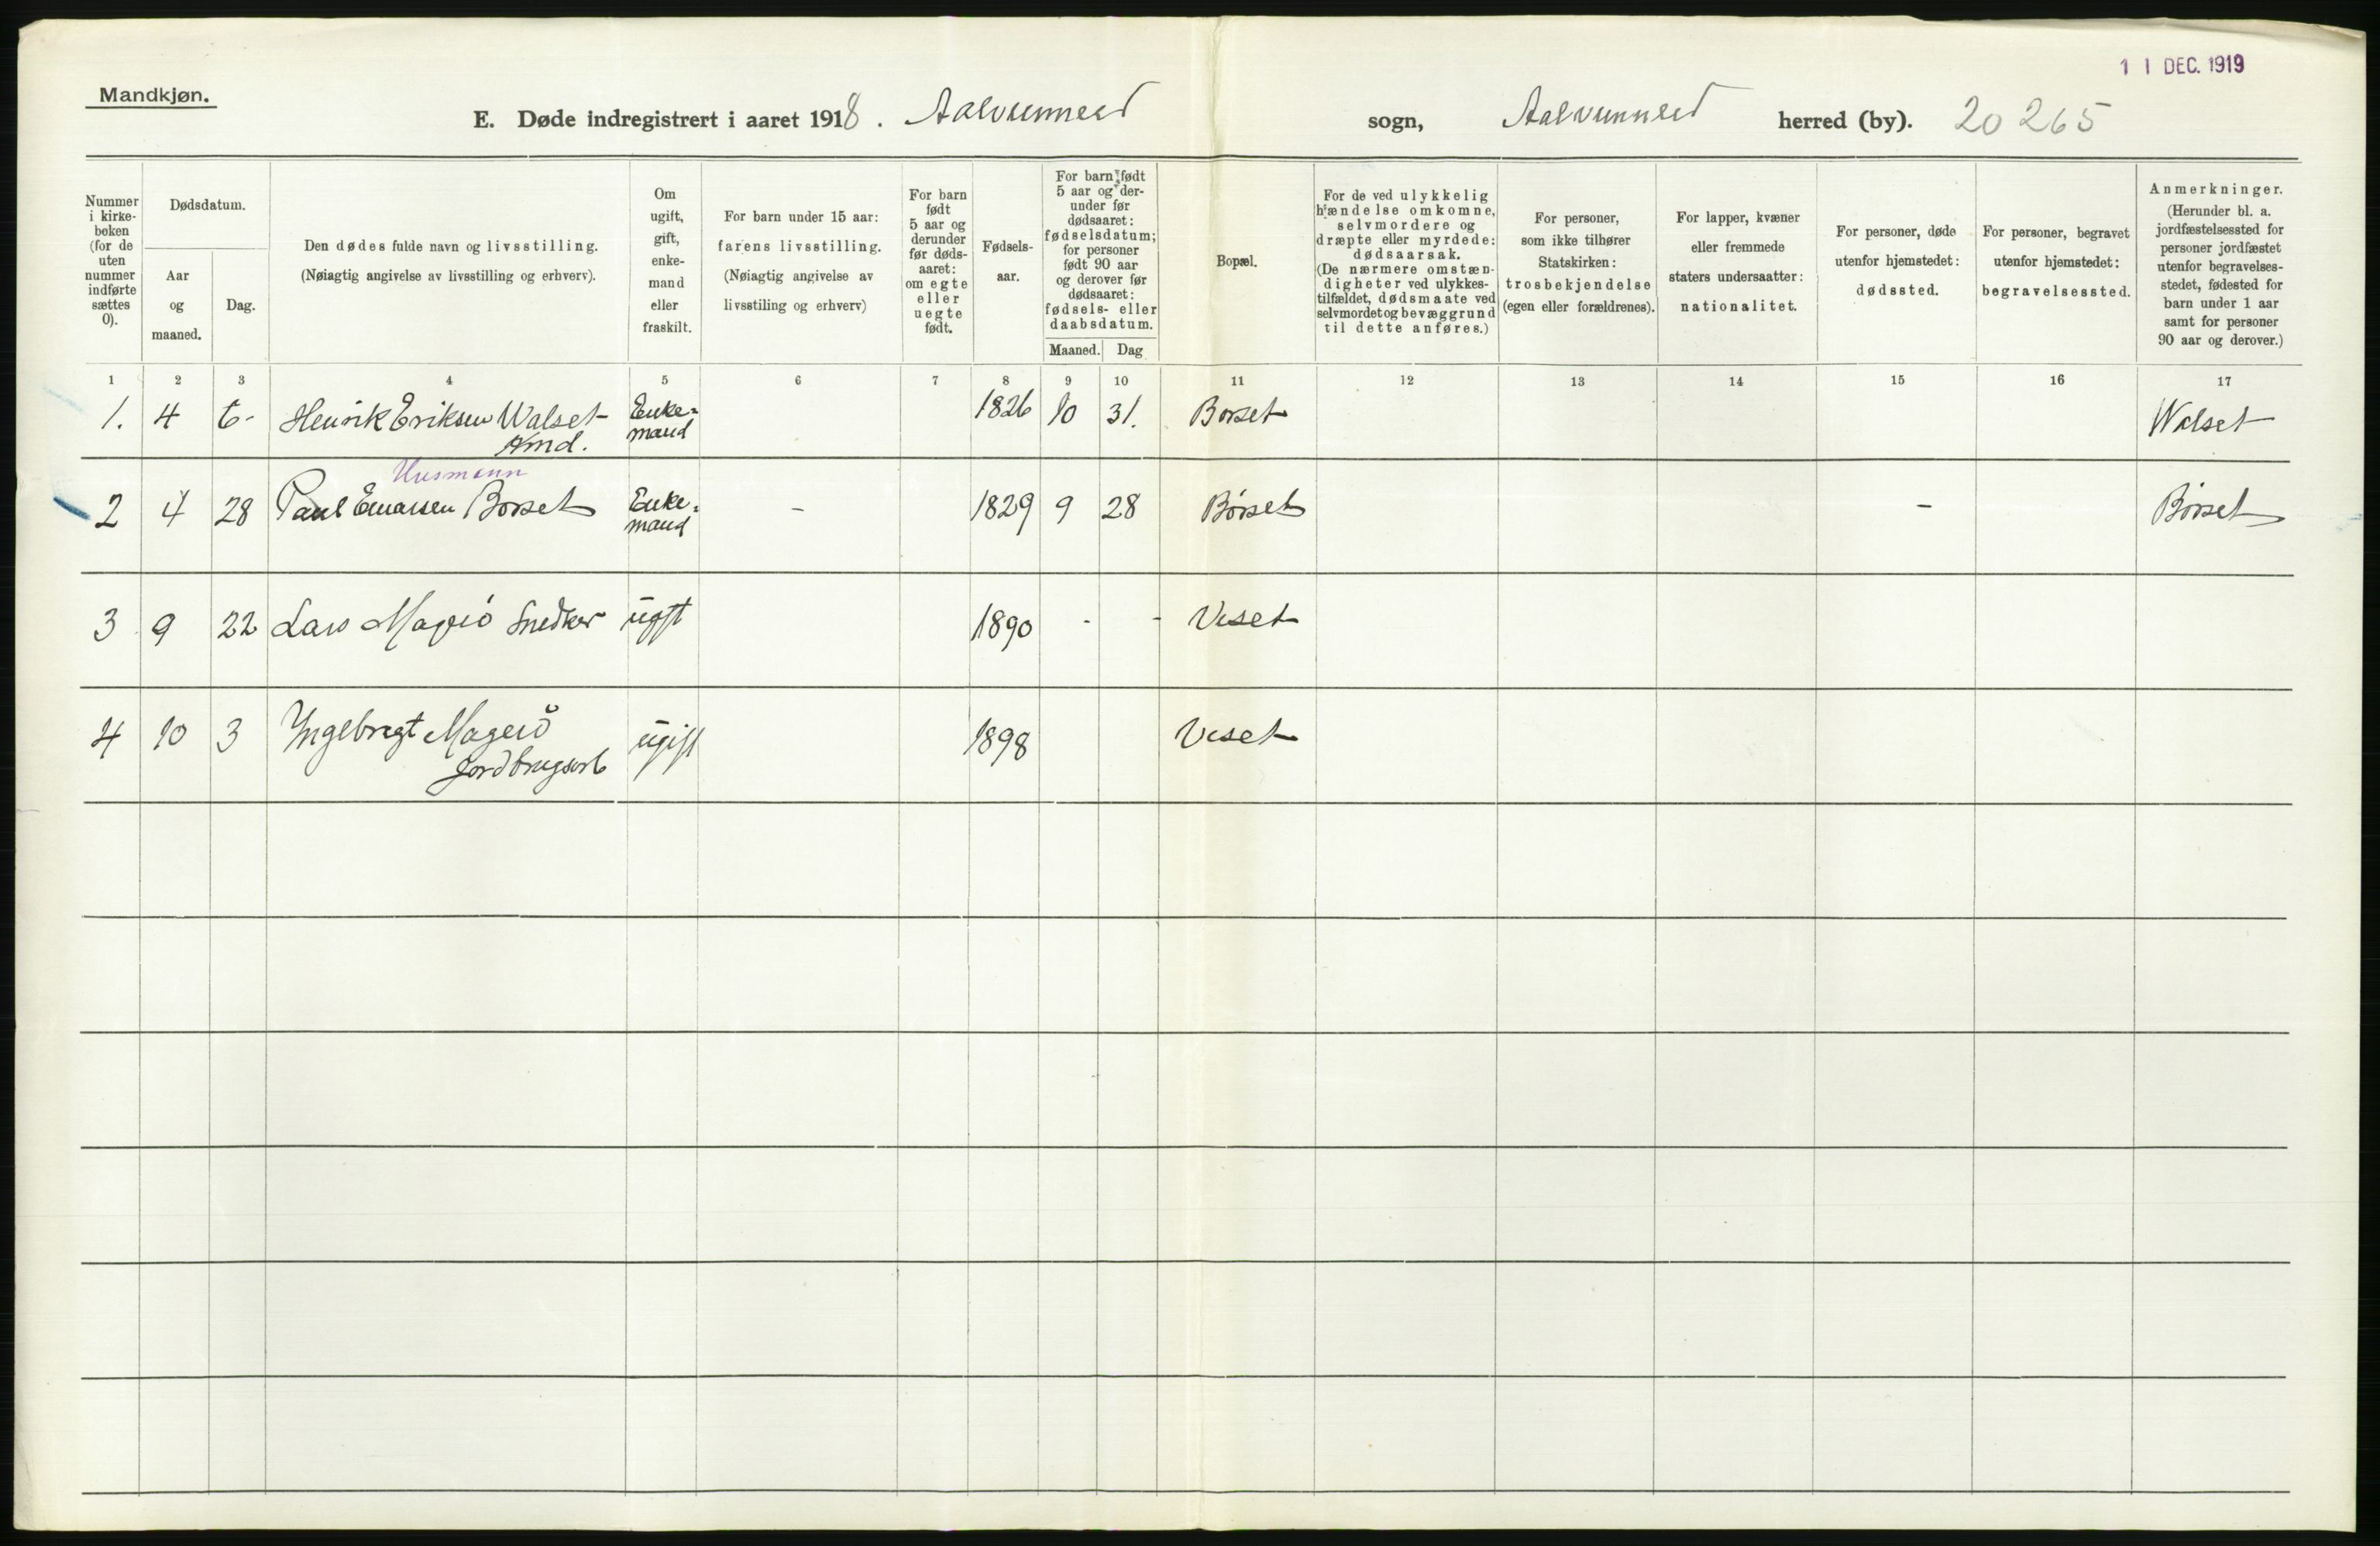 1 1 DEC. 1919
Mandkjøn.
E. Døde indregistrert i aaret 1918. Aalvunneid sogn, Aalvunneid herred (by). 20 265
Nummer i kirke-boken (for de uten nummer indførte sættes 0).
Dødsdatum.
Aar og maaned.
Dag.
Den dødes fulde navn og livsstilling.
(Nøiagtig angivelse av livsstilling og erhverv).
Om ugift, gift, enke-mand eller fraskilt.
For barn under 15 aar: farens livsstilling.
(Nøiagtig angivelse av livsstiling og erhverv)
For barn født 5 aar og derunder før døds-aaret: om egte eller uegte født.
Fødsels-aar.
For barn født 5 aar og der-under før dødsaaret: fødselsdatum; for personer født 90 aar og derover før dødsaaret: fødsels- eller daabsdatum.
Maaned. Dag
Bopæl.
For de ved ulykkelig hændelse omkomne, selvmordere og dræpte eller myrdede: dødsaarsak.
(De nærmere omstæn-digheter ved ulykkes-tilfældet, dødsmaate ved selvmordet og bevæggrund til dette anføres.)
For personer, som ikke tilhører Statskirken: trosbekjendelse (egen eller forældrenes).
For lapper, kvæner eller fremmede staters undersaatter: nationalitet.
For personer, døde utenfor hjemstedet: dødssted.
For personer, begravet utenfor hjemstedet: begravelsessted.
Anmerkninger.
(Herunder bl. a. jordfæstelsessted for personer jordfæstet utenfor begravelses-stedet, fødested for barn under 1 aar samt for personer 90 aar og derover.)
1 2 3 4 5 6 7 8 9 10 11 12 13 14 15 16 17
1. 4 6- Henrik Eriksen Walset Enke= 1826 10 31. Borset Walset
mand
Husmann
2 4 28 Paul Einarsen Borset Enke= - 1829 9 28 Børset - Børset
mand
3 9 22 Lars Magerö Snedker ugift 1890 - - Viset
4 10 3 Ingebregt Magerö ugift 1898 Viset
Jordbrugsarb